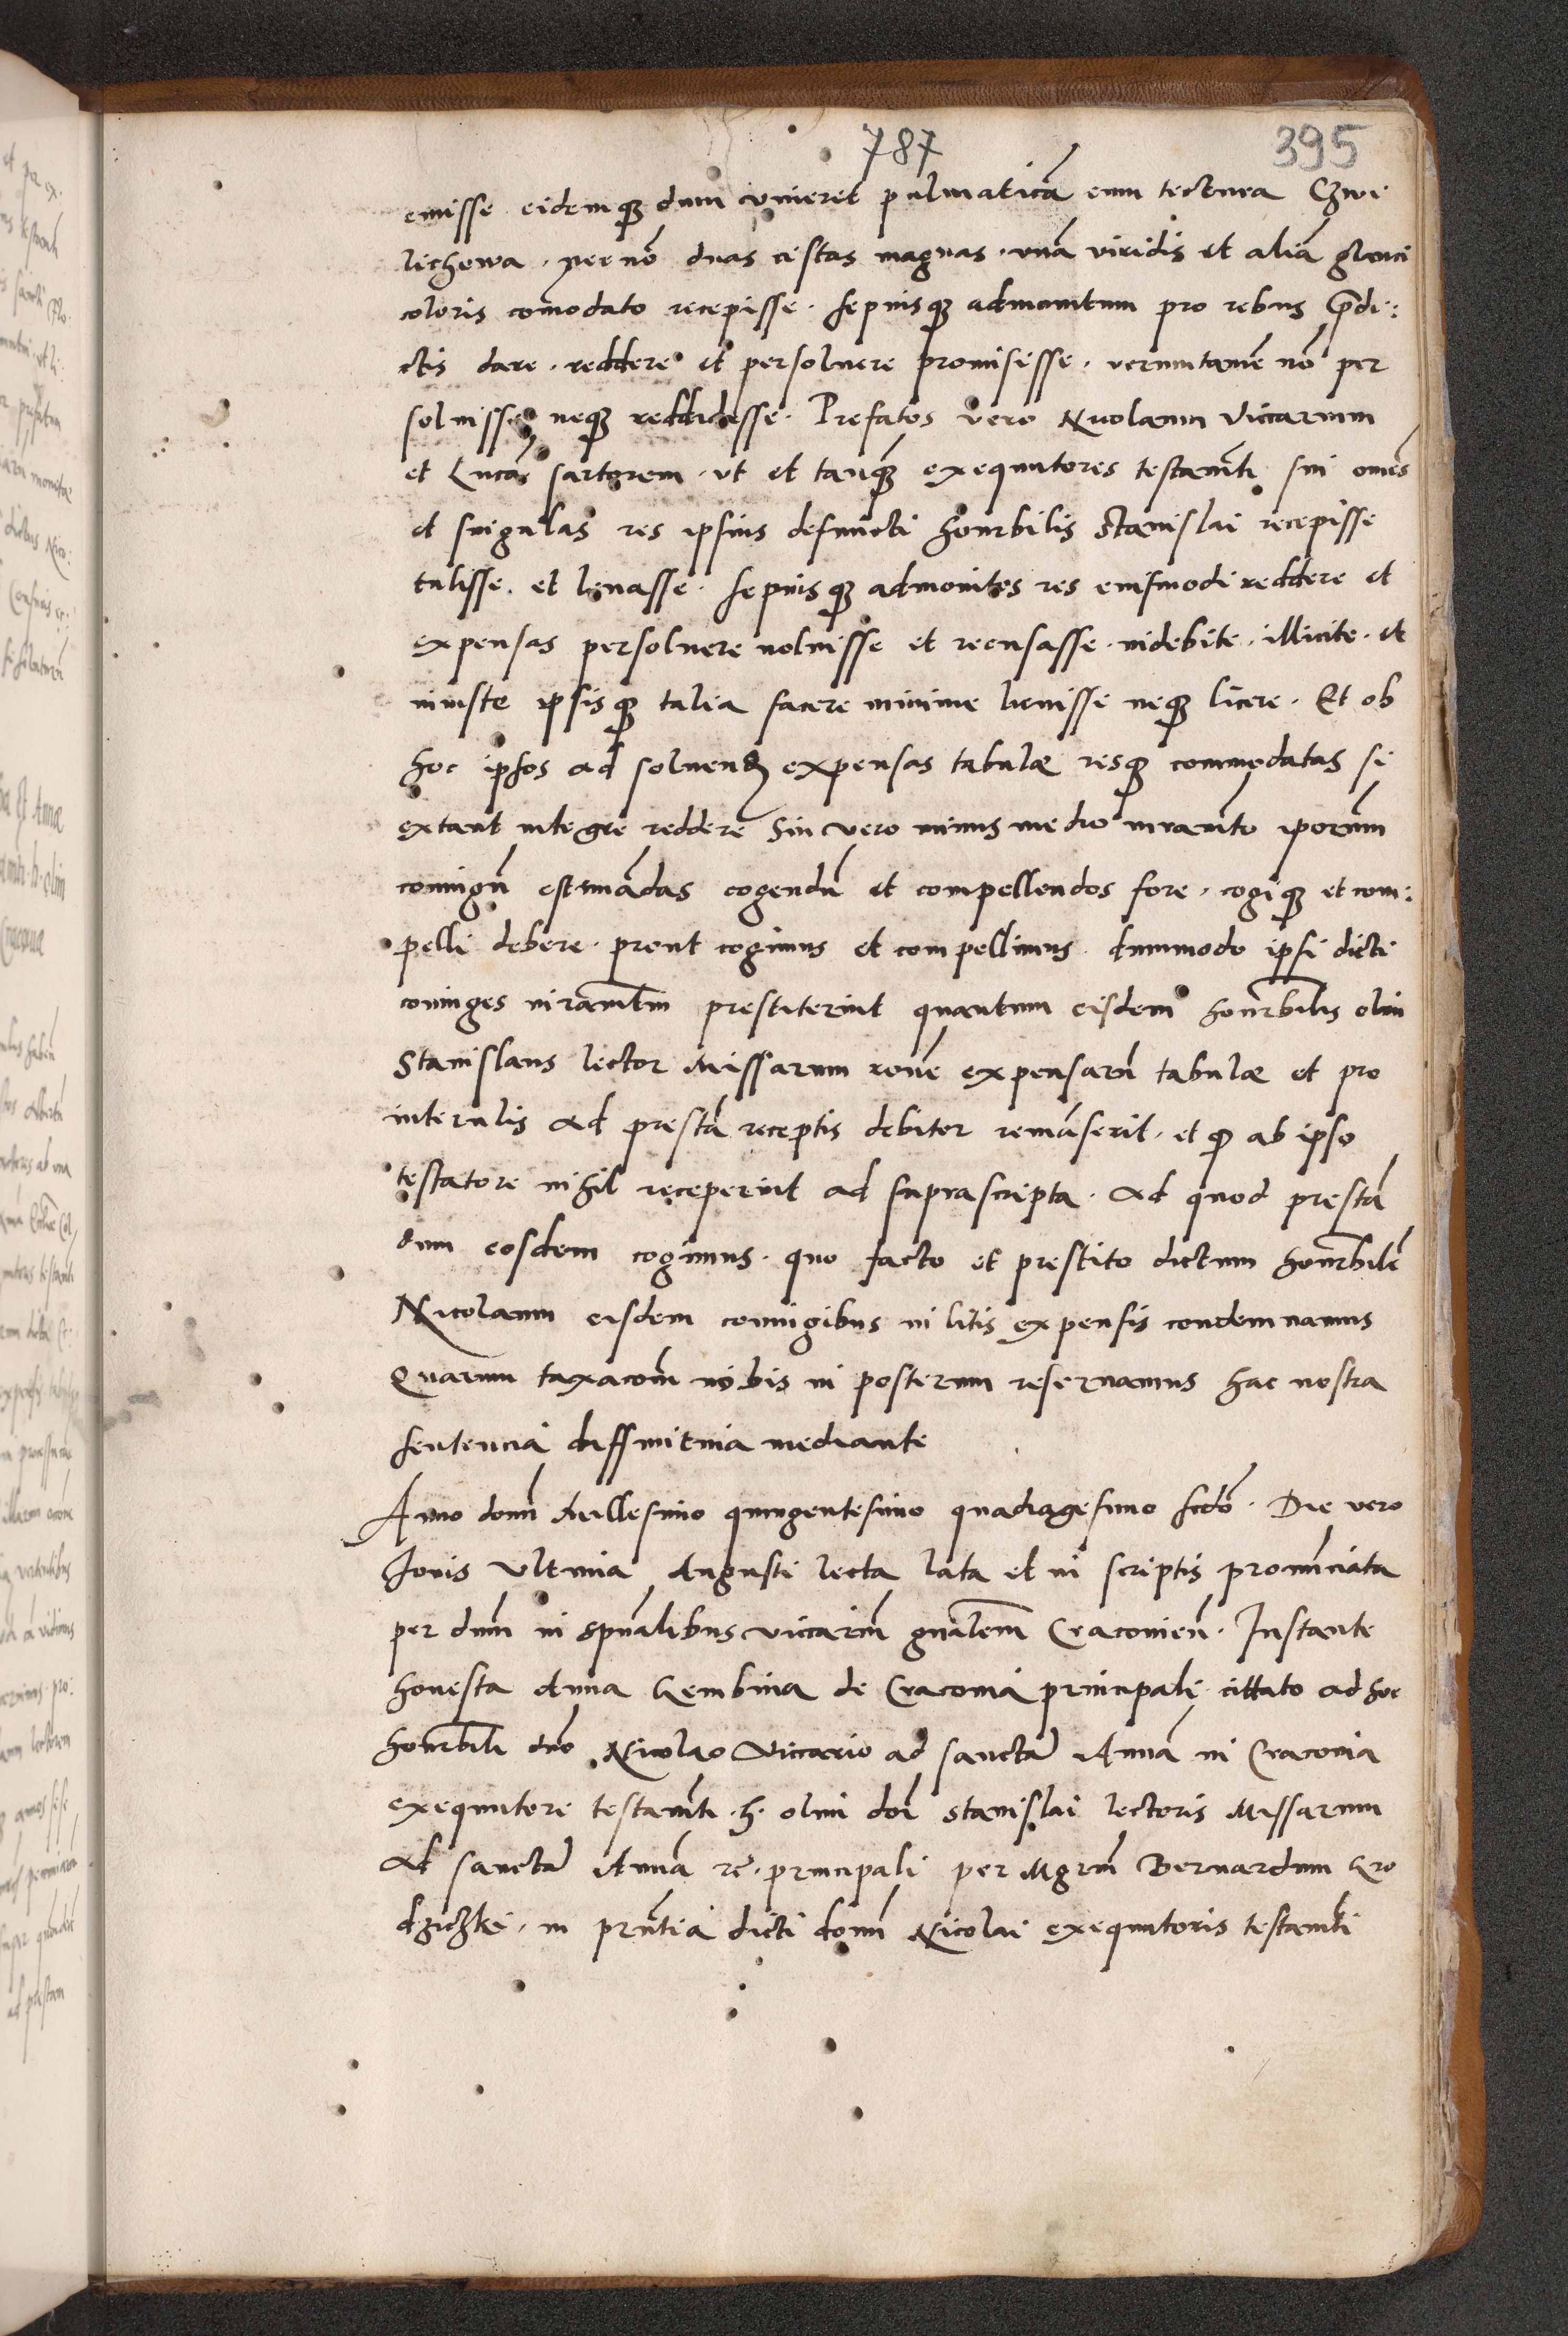 787
395
emisse eidemq3 dum iunieret pulmaticā cum tectura Czwi
lichowa, necnō duas cistas magnas, vnā viridis et aliā glauci
coloris comodato recepisse. sepiusq3 admonitum pro rebus p̄di:
ctis dare, reddere et persoluere promisisse, verumtamē nō per
soluisse, neq3 reddidisse. Prefatos vero Nicolaum Viccarium
et Lucā sartorem, vt et tanq3 exequutores testamti sui omēs
et singulas res ipsius defuncti honrbilis Stanislai recepisse
tulisse, et leuasse. sepiusq3 admonitos res eiusmodi reddere et
expensas persoluere noluisse et recusasse, indebite, illicite, et
iniuste ipsisq3 talia facere minime licuisse neq3 licere. Et ob
hoc ipsos ad soluend expensas tabulæ resq3 commodatas si
extant integre reddere Sin vero minus medio iuramto iporum
coniugū estimādas cogendū et compellendos fore, cogiq3 et com:
pelli debere. prout cogimus et compellimus. dummodo ipsi dicti
coniuges iuramtm prestiterint quantum eisdem honrbilis olim
Stanislaus lector Missarum rone expensarū tabulæ et pro
interulis ad prestā receptis debitor remāserit, et q ab ipso
testatore nihil receperint ad suprascripta. Ad quod prestā
dum eosdem cogimus. quo facto et prestito dictum honrbilē
Nicolaum eisdem coniugibus in litis expensis condemnamus
Quarum taxacom nobis in posterum reseruamus hac nostra
sententia diffinitiua mediante
Anno domi Millesimo quingentesimo quadragesimo scdō. Die vero
Jouis Vltima Augusti lecta lata et in scriptis pronunciata
per dnm in spūalibus viccariū gnalem Cracouieñ. Instante
honesta Anna Gembina de Cracouia principali cittato ad hoc
honrbili dno Nicolao Viccario ad sanctā Annā in Cracouia
exequutore testamti h. olim doi Stanislai lectoris Missarum
Ad sanctā Annā re. principali per Mgrm Bernardum Gro
dziczki, in prntia dicti domi Nicolai exequutoris testamti